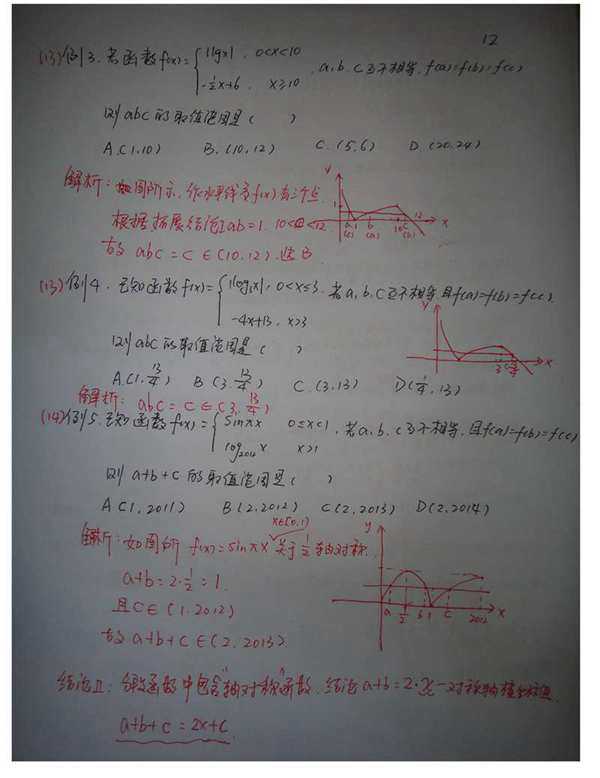 12
(13)例3. 若函数f(x)={|lgx|, 0<x<10
-½x+6, x≥10 , a、b、c互不相等, f(a)=f(b)=f(c)
则abc的取值范围是( )
A.(1,10) B.(10,12) C.(5,6) D.(20,24)
解析:如图所示,作水平线交f(x)有三个点
根据拓展结论Iab=1. 10<c<12
故abc=C∈(10,12).选B
y 1 a 1 b 10 c 12 x
(13)例4.已知函数f(x)={|log₃x|, 0<x≤3 . 若a,b,c互不相等,且f(a)=f(b)=f(c).
-4x+13, x>3
则abc的取值范围是( )
A.(1,13/4) B(3,13/4) C.(3,13) D(1/4,13)
y 3 13/4 x
解析: abc=C∈(3,13/4)
(14)例5.已知函数f(x)={sinπx 0≤x≤1 , 若a、b、c互不相等,且f(a)=f(b)=f(c)
log₂₀₁₂x x>1
则a+b+c的取值范围是( )
A(1,2011) B(2,2012) C(2,2013) D(2,2014)
x∈[0,1)
解析:如图所 f(x)=sinπx 关于½轴对称.
a+b=2·½=1
且C∈(1,2012)
故a+b+c∈(2,2013)
y a ½ b 1 c 2012 x
结论II:分段函数中包含"轴对称"函数.结论a+b=2·x—对称轴横坐标
a+b+c=2x+c